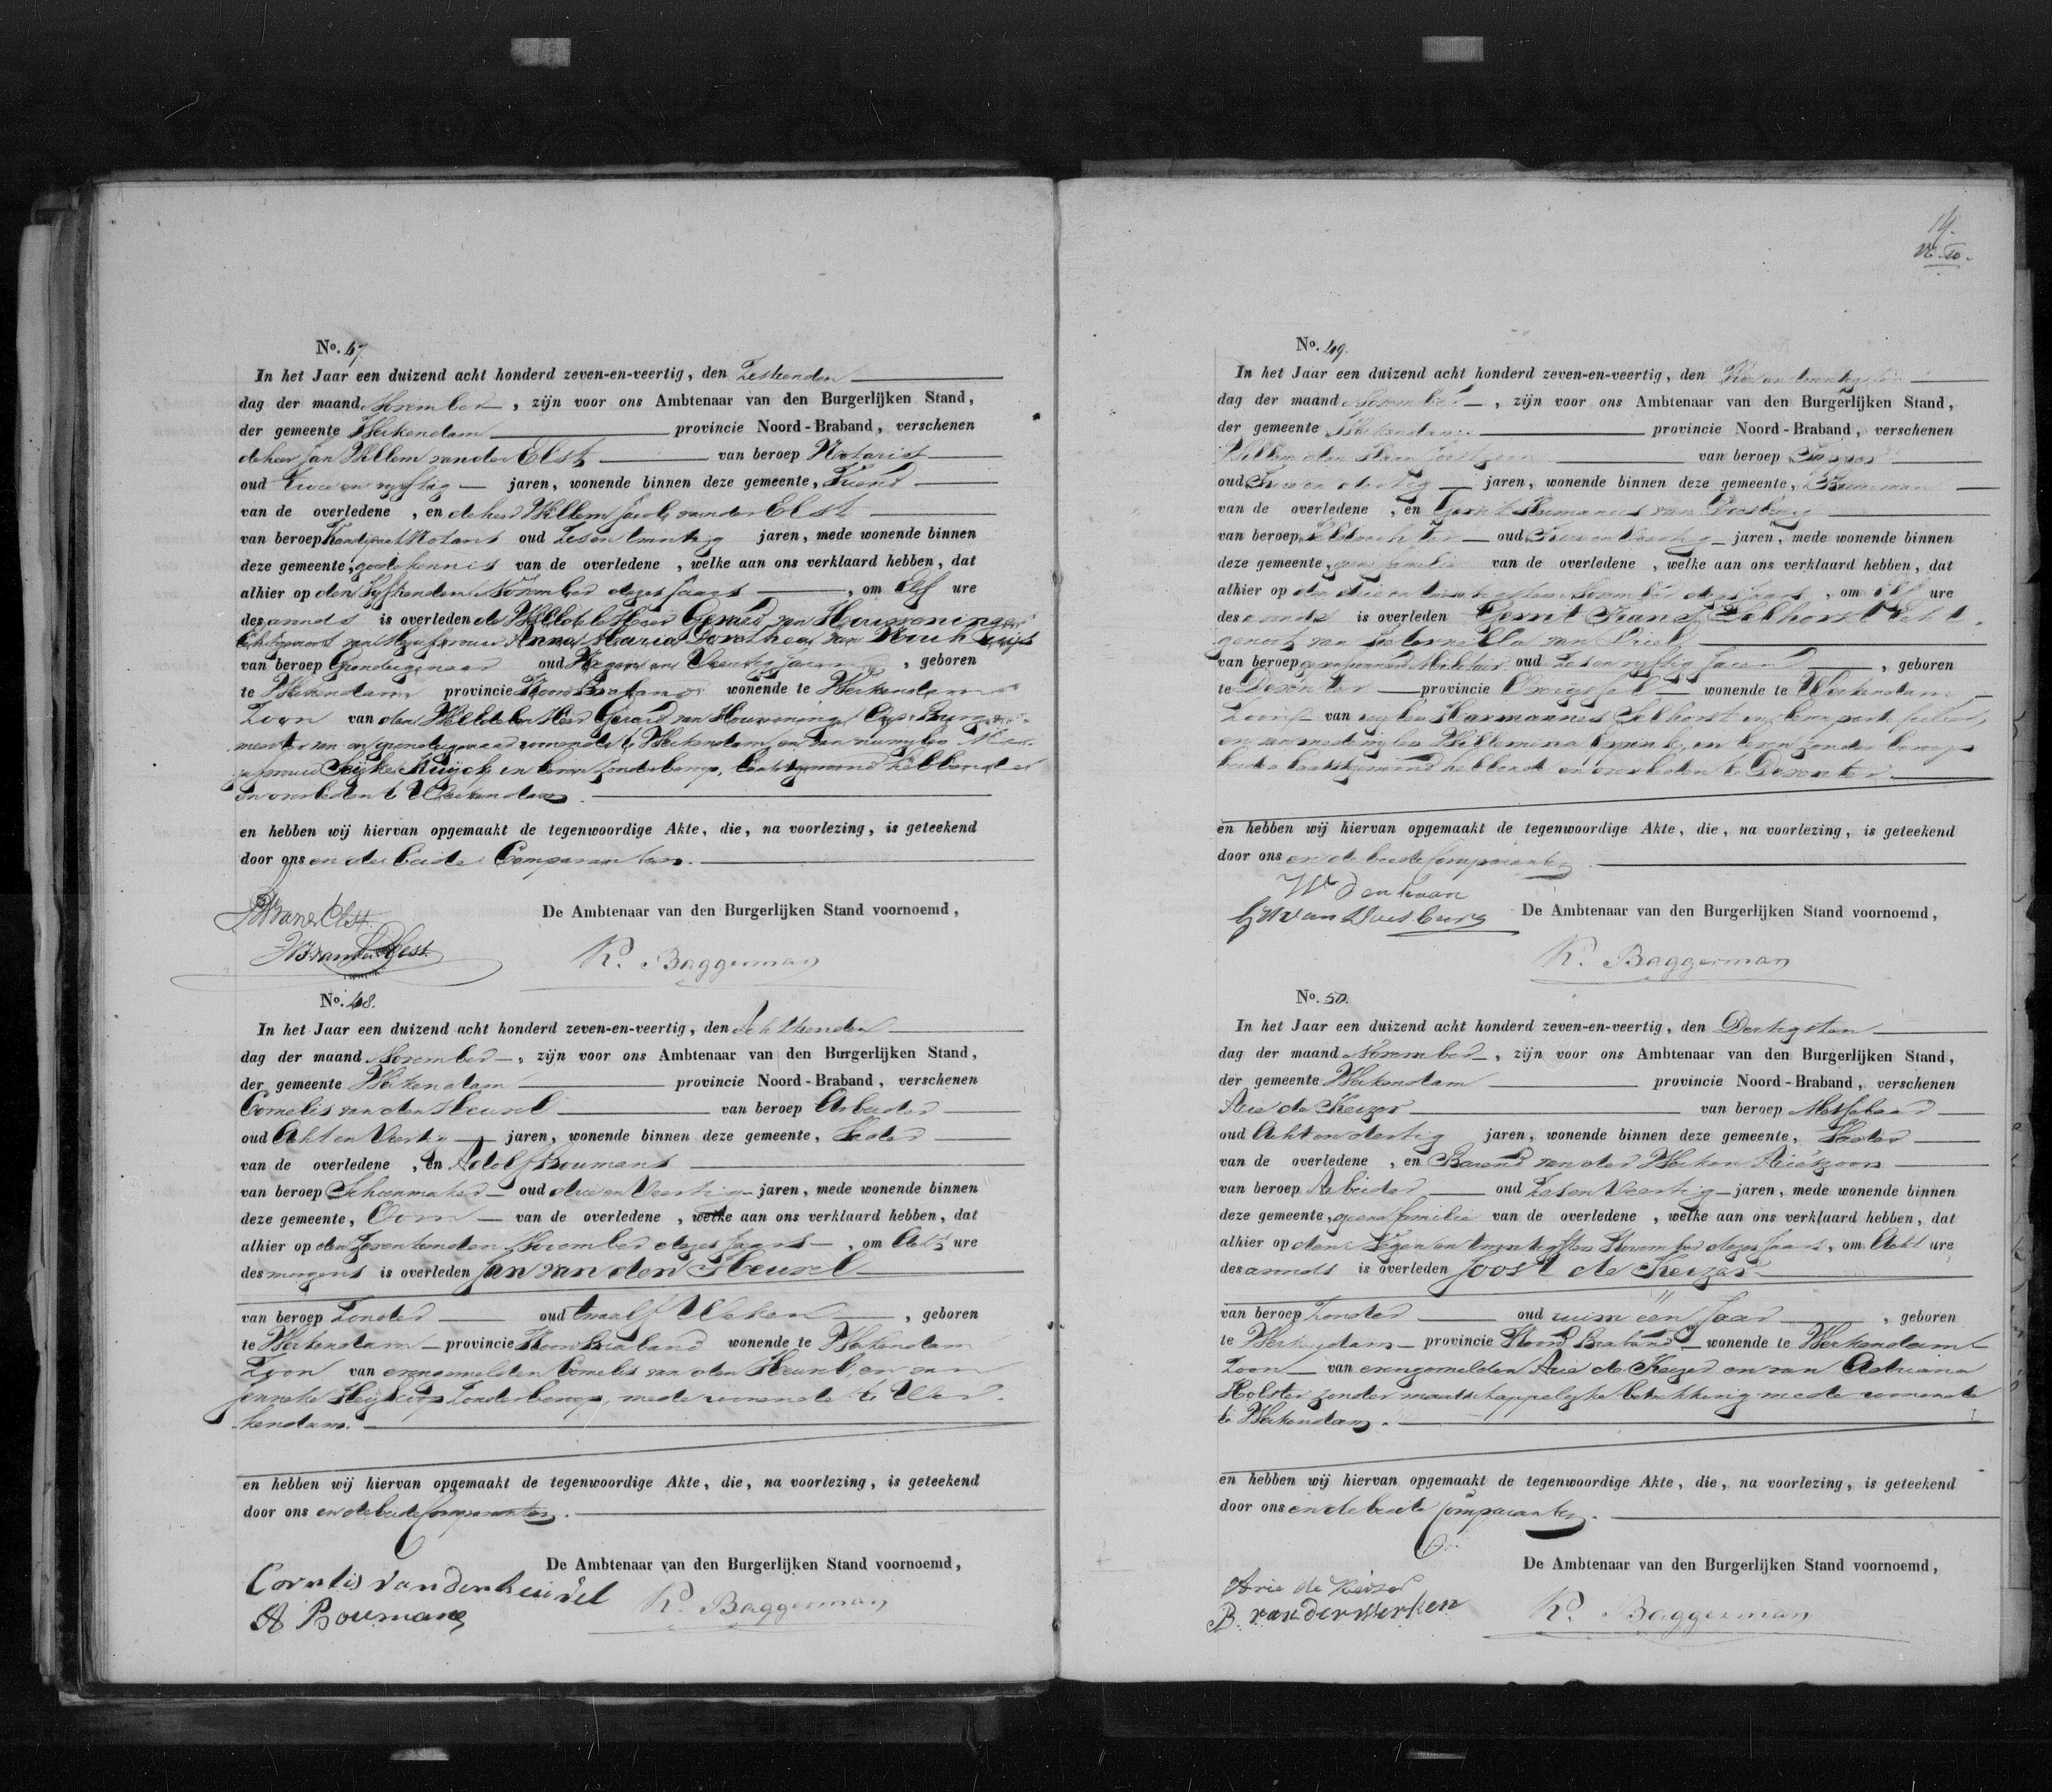 No. 47.
In het Jaar een duizend acht honderd zeven-en-veertig, den Zestienden
dag der maand November, zijn voor ons Ambtenaar van den Burgerlijken Stand,
der gemeente Werkendam provincie Noord-Braband, verschenen
de heer Jan Willem van der Elst van beroep Notaris
oud Twee en vyftig jaren, wonende binnen deze gemeente, Vriend
van de overledene, en de heer Willem Jacob van der Elst
van beroep Kandidaat Notaris oud Zes en twintig jaren, mede wonende binnen
deze gemeente, goede kennis van de overledene, welke aan ons verklaard hebben, dat
alhier op den Vyftienden November dezes Jaars, om Elf ure
des avonds is overleden de WelEdele Heer Gerard van Houweningen
Echtgenoot van Mejufvrouw Anna Maria Dorothea van
van beroep Grondeigenaar oud Negen en Veertig Jaren, geboren
te Werkendam provincie Noord Braband wonende te Werkendam
Zoon van den WelEdelen Heer Gerard van Houweningen Burge-
meester van en grondeigenaar wonende te Werkendam en van wylen Me-
jufvrouw Kuyck in leven zonder beroep, laatst gewoond hebbende
en overleden te Werkendam.
en hebben wij hiervan opgemaakt de tegenwoordige Akte, die, na voorlezing, is geteekend
door ons en de beide Comparanten.
De Ambtenaar van den Burgerlijken Stand voornoemd,
JW van der Elst
WJ van der Elst
K. Baggerman
No. 48.
In het Jaar een duizend acht honderd zeven-en-veertig, den Achttienden
dag der maand November, zijn voor ons Ambtenaar van den Burgerlijken Stand,
der gemeente Werkendam provincie Noord-Braband, verschenen
Cornelis van den Heuvel van beroep Arbeider
oud Acht en Veertig jaren, wonende binnen deze gemeente, Vader
van de overledene, en Adolf Boumans
van beroep Schoenmaker oud drie en Veertig jaren, mede wonende binnen
deze gemeente, Oom van de overledene, welke aan ons verklaard hebben, dat
alhier op den Zeventienden November dezes Jaars, om Acht ure
des morgens is overleden Jan van den Heuvel
van beroep Zonder oud twaalf Weken, geboren
te Werkendam provincie Noord Braband wonende te Werkendam
Zoon van evengemelden Cornelis van den Heuvel, en van
Janneke Heijkoop Zonder beroep, mede wonende te Wer-
kendam.
en hebben wij hiervan opgemaakt de tegenwoordige Akte, die, na voorlezing, is geteekend
door ons en de beide Comparanten.
De Ambtenaar van den Burgerlijken Stand voornoemd,
Cornelis van den heuvel
A Boumans
K. Baggerman
19.
No. 49.
In het Jaar een duizend acht honderd zeven-en-veertig, den Vier en twintigsten
dag der maand November, zijn voor ons Ambtenaar van den Burgerlijken Stand,
der gemeente Werkendam provincie Noord-Braband, verschenen
Willem den Haan Joostzoon van beroep Tapper
oud Twee en dertig jaren, wonende binnen deze gemeente, Buurman
van de overledene, en Gerrit Hermanus van Doesburg
van beroep Veldwachter oud Twee en Veertig jaren, mede wonende binnen
deze gemeente, geene familie van de overledene, welke aan ons verklaard hebben, dat
alhier op den drie en twintigsten November dezes Jaars, om Elf ure
des avonds is overleden Gerrit Frans Selhorst Echt-
genoot van Pieternella van Driel
van beroep gepensioneerd Militair oud Zes en vyftig Jaren, geboren
te Deventer provincie Overijssel wonende te Werkendam
Zoon van wylen Harmannes Selhorst in leven
en van mede wylen Willemina in leven zonder beroep
beiden laatst gewoond hebbende en overleden te Deventer
en hebben wij hiervan opgemaakt de tegenwoordige Akte, die, na voorlezing, is geteekend
door ons en de beide Comparanten
De Ambtenaar van den Burgerlijken Stand voornoemd,
W den haan
G H van Doesburg
K. Baggerman
No. 50.
In het Jaar een duizend acht honderd zeven-en-veertig, den Dertigsten
dag der maand November, zijn voor ons Ambtenaar van den Burgerlijken Stand,
der gemeente Werkendam provincie Noord-Braband, verschenen
Arie de Keizer van beroep Metselaar
oud Acht en dertig jaren, wonende binnen deze gemeente, Vader
van de overledene, en Barend van der Werken Ariezoon
van beroep Arbeider oud Zes en Veertig jaren, mede wonende binnen
deze gemeente, geene familie van de overledene, welke aan ons verklaard hebben, dat
alhier op den Negen en twintigsten November dezes Jaars, om Acht ure
des avonds is overleden Joost de Keizer
van beroep Zonder oud ruim één Jaar, geboren
te Werkendam provincie Noord Braband wonende te Werkendam
Zoon van evengemelden Arie de Keizer en van Adriana
Holster zonder maatschappelyke betrekking mede wonende
te Werkendam.
en hebben wij hiervan opgemaakt de tegenwoordige Akte, die, na voorlezing, is geteekend
door ons en de beide Comparanten.
De Ambtenaar van den Burgerlijken Stand voornoemd,
Arie de Keizer
B. van der werken
K. Baggerman